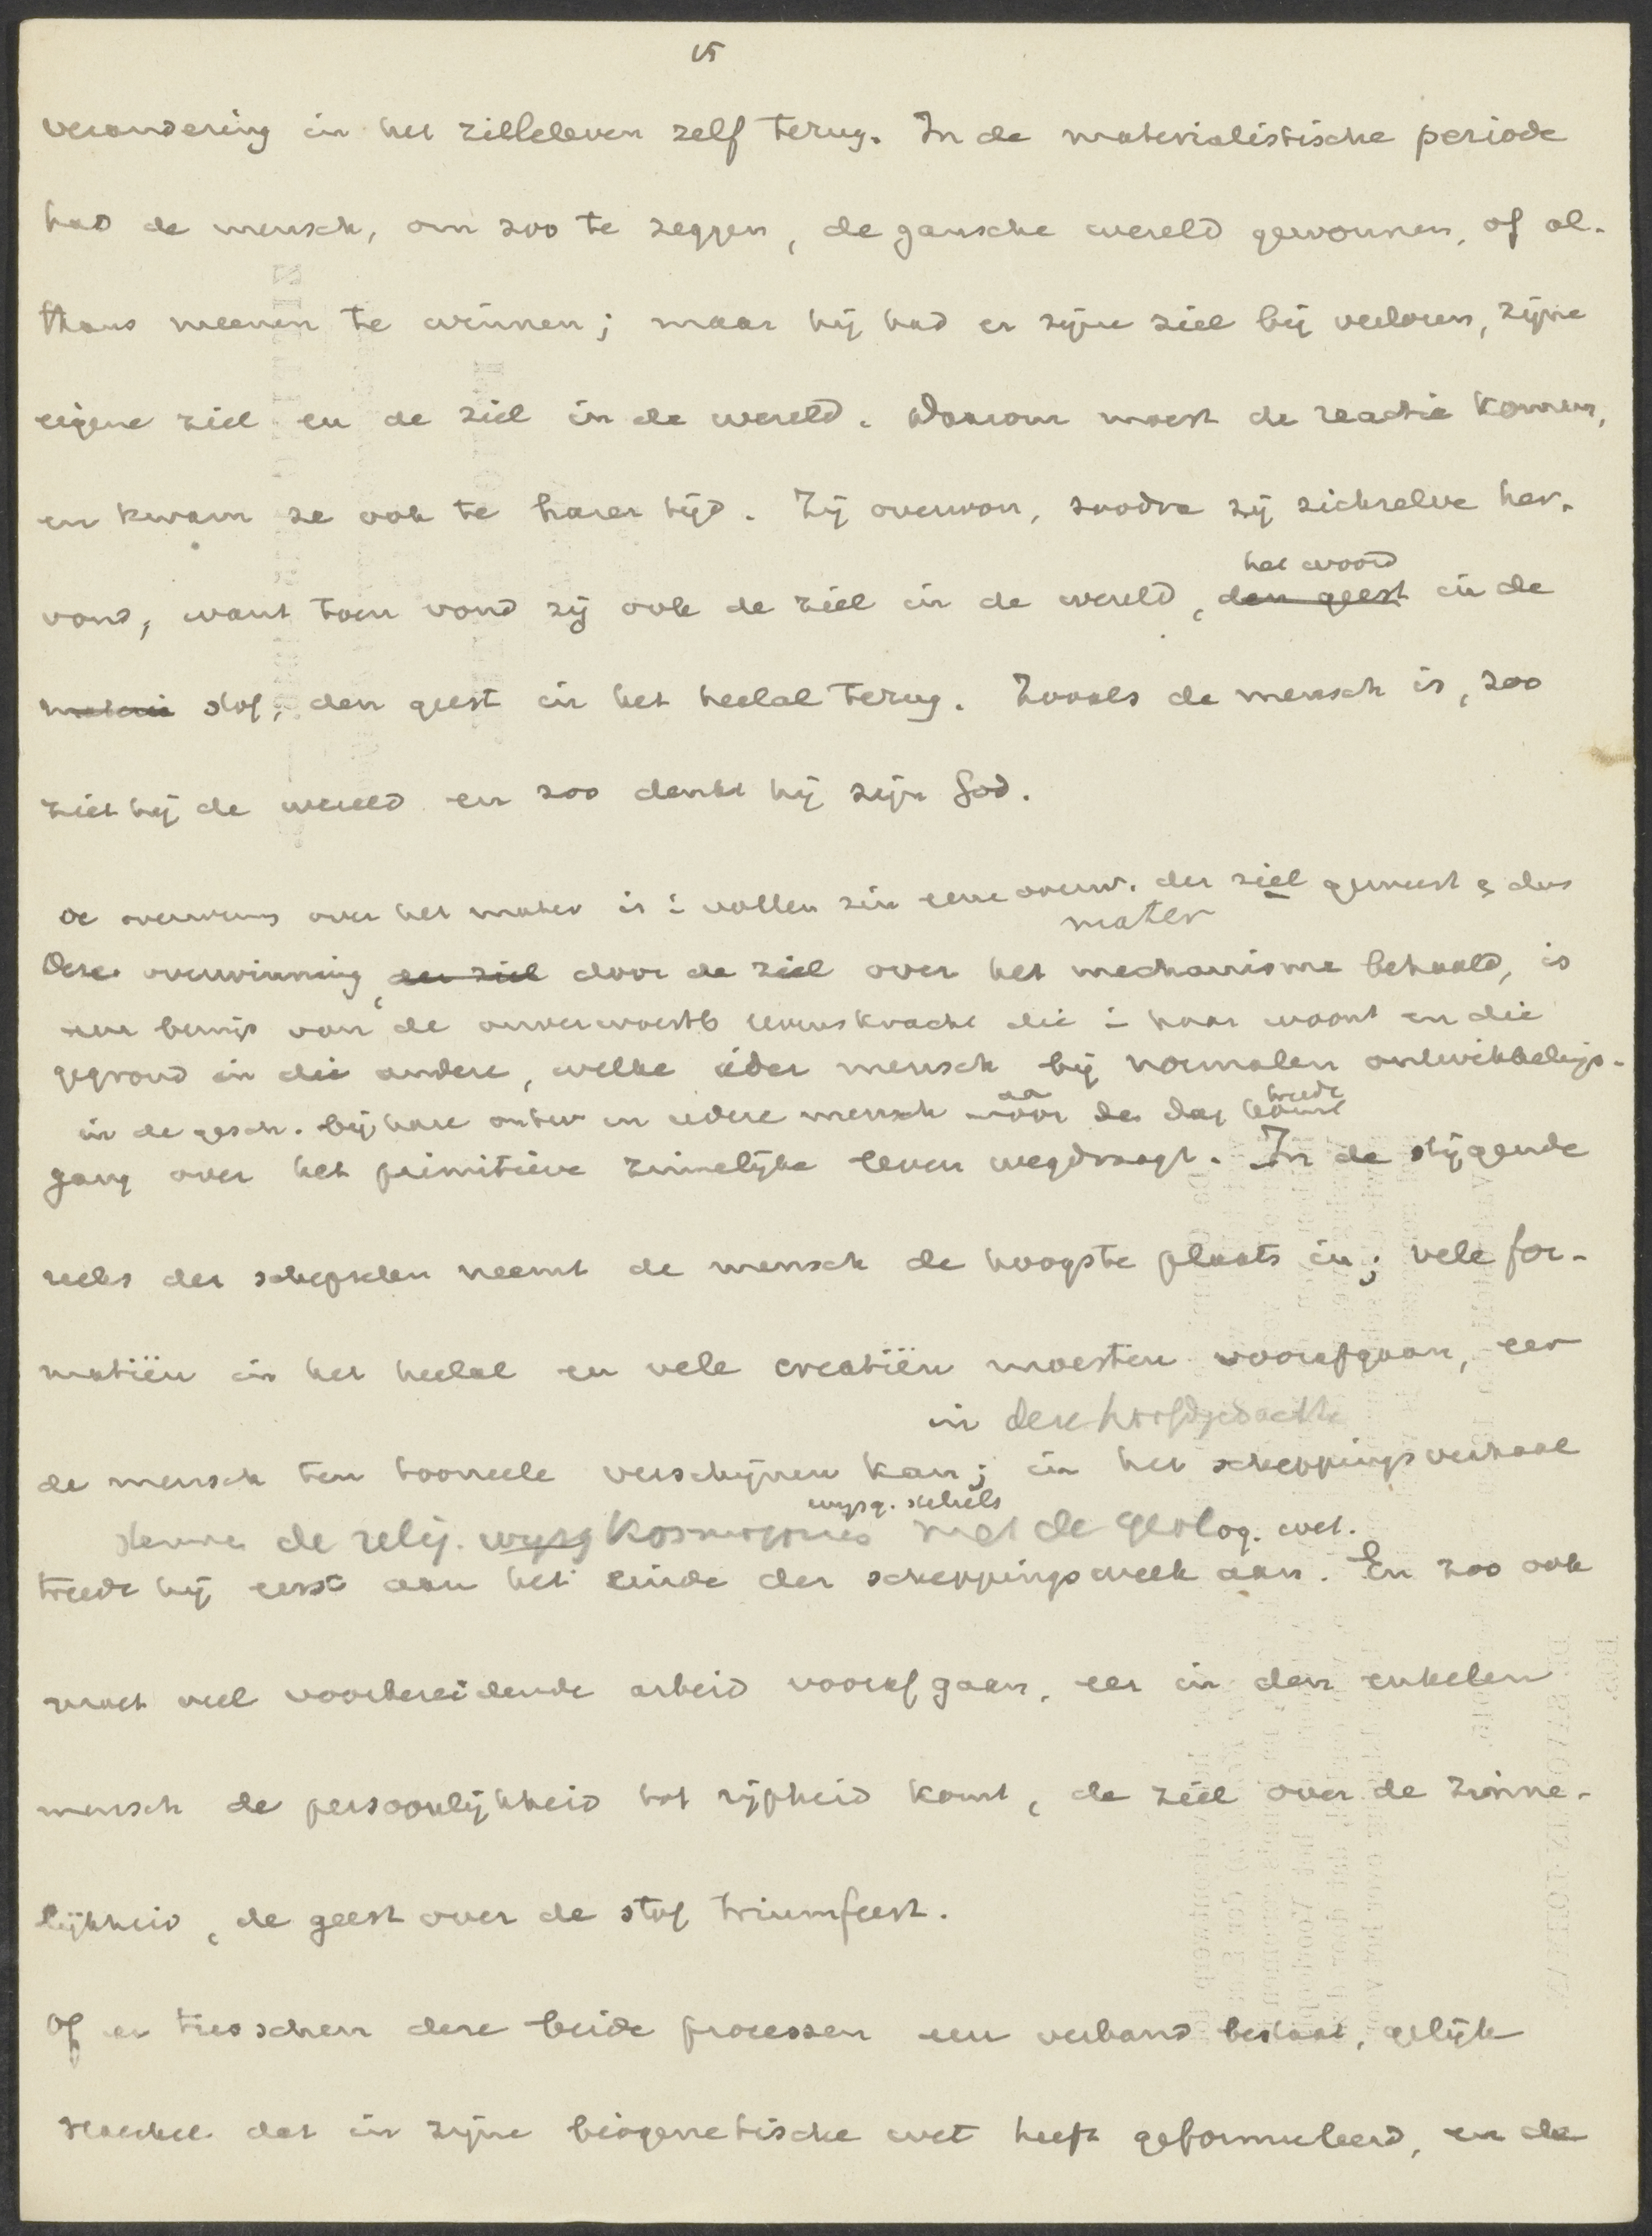 15
verandering in het zielleleven zelf terug. In de materialistische periode
had de mensch, om zoo te zeggen, de gansche wereld gewonnen, of al-
thans meenen te winnen; maar hij had er zijne ziel bij verloren, zijne
eigene ziel en de ziel in de wereld. Daarom moest de reactie komen,
en kwam ze ook te harer tijd. Zij overwon, zoodra zij zichzelve her-
het woord
vond, want toen vond zij ook de ziel in de wereld, den geest in de
materie stof, den geest in het heelal terug. Zooals de mensch is, zoo
ziet hij de wereld en zoo denkt hij zijn God.
De overwinns over het mater is i vollen zin eene overw. der ziel geweest & dus
mater
Deze overwinning, der ziel door de ziel over het mechanisme behaald, is
een bewijs van de onverwoestb levenskracht die i haar woont en die
gegrond in die andere, welke ieder mensch bij normalen ontwikkelings-
in de gesch. bij hare ontw en iedere mensch voor den dag komt
aa treedt
gang over het primitieve zinnelijke leven wegdraagt. In de stijgende
reeks der schepselen neemt de mensch de hoogste plaats in; vele for-
matiën in het heelal en vele creatiën moesten voorafgaan, eer
in deze hoofdgedachte
de mensch ten tooneele verschijnen kan; in het scheppingsverhaal
wijsg. stelsels
stemmen de relig. wijsg kosmogonies met de geolog. wet.
treedt hij eerst aan het einde der scheppingsweek aan. En zoo ook
moet veel voorbereidende arbeid voorafgaan, eer in den enkelen
mensch de persoonlijkheid tot rijpheid komt, de ziel over de zinne-
lijkheid, de geest over de stof triumfeert.
Of er tusschen deze beide processen een verband bestaat, gelijk
Haeckel dat in zijne biogenetische wet heeft geformuleerd, en de